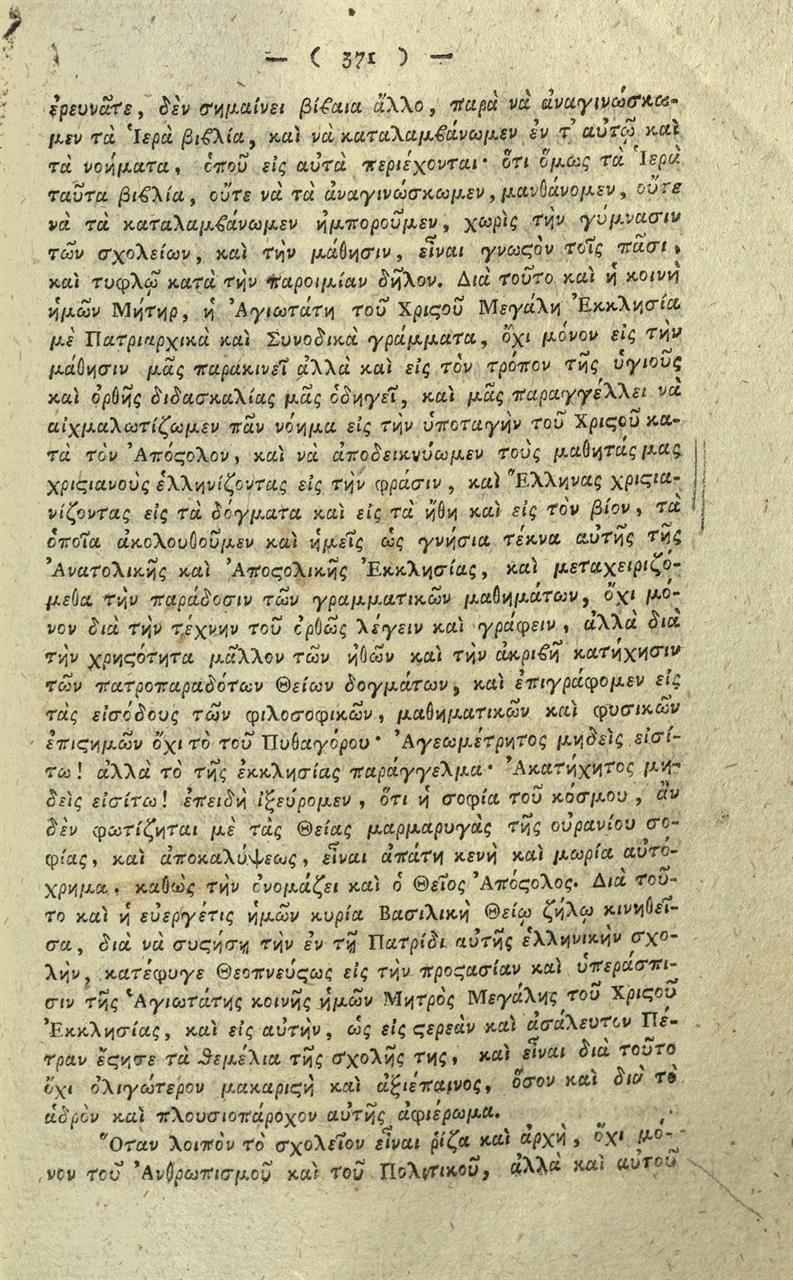 — ( 371 ) —
ἐρευνᾶτε, δὲν σημαίνει βέβαια ἄλλο, παρὰ νὰ ἀναγινώσκω-
μεν τὰ Ἱερὰ βιβλία, καὶ νὰ καταλαμβάνωμεν ἐν τ' αὐτῷ καὶ
τὰ νοήματα, ὁποῦ εἰς αὐτὰ περιέχονται· ὅτι ὅμως τὰ Ἱερὰ
ταῦτα βιβλία, οὔτε νὰ τὰ ἀναγινώσκωμεν, μανθάνομεν, οὔτε
νὰ τὰ καταλαμβάνωμεν ἠμποροῦμεν, χωρὶς τὴν γύμνασιν
τῶν σχολείων, καὶ τὴν μάθησιν, εἶναι γνωϛὸν τοῖς πᾶσι,
καὶ τυφλῷ κατὰ τὴν παροιμίαν δῆλον. Διὰ τοῦτο καὶ ἡ κοινὴ
ἡμῶν Μήτηρ, ἡ Ἁγιωτάτη τοῦ Χριϛοῦ Μεγάλη Ἐκκλησία
μὲ Πατριαρχικὰ καὶ Συνοδικὰ γράμματα, ὄχι μόνον εἰς τὴν
μάθησιν μᾶς παρακινεῖ ἀλλὰ καὶ εἰς τὸν τρόπον τῆς ὑγιοῦς
καὶ ὀρθῆς διδασκαλίας μᾶς ὁδηγεῖ, καὶ μᾶς παραγγέλλει νὰ
αἰχμαλωτίζωμεν πᾶν νόημα εἰς τὴν ὑποταγὴν τοῦ Χριϛοῦ κα-
τὰ τὸν Ἀπόϛολον, καὶ νὰ ἀποδεικνύωμεν τοὺς μαθητάς μας
χριϛιανοὺς ἑλληνίζοντας εἰς τὴν φράσιν, καὶ Ἕλληνας χριϛια-
νίζοντας εἰς τὰ δόγματα καὶ εἰς τὰ ἤθη καὶ εἰς τὸν βίον, τὰ
ὁποῖα ἀκολουθοῦμεν καὶ ἡμεῖς ὡς γνήσια τέκνα αὐτῆς τῆς
Ἀνατολικῆς καὶ Ἀποϛολικῆς Ἐκκλησίας, καὶ μεταχειριζό-
μεθα τὴν παράδοσιν τῶν γραμματικῶν μαθημάτων, ὄχι μό-
νον διὰ τὴν τέχνην τοῦ ὀρθῶς λέγειν καὶ γράφειν, ἀλλὰ διὰ
τὴν χρηϛότητα μᾶλλον τῶν ἠθῶν καὶ τὴν ἀκριβῆ κατήχησιν
τῶν πατροπαραδότων Θείων δογμάτων, καὶ ἐπιγράφομεν εἰς
τὰς εἰσόδους τῶν φιλοσοφικῶν, μαθηματικῶν καὶ φυσικῶν
ἐπιϛημῶν ὄχι τὸ τοῦ Πυθαγόρου· Ἀγεωμέτρητος μηδεὶς εἰσί-
τω! ἀλλὰ τὸ τῆς ἐκκλησίας παράγγελμα· Ἀκατήχητος μη-
δεὶς εἰσίτω! ἐπειδὴ ἠξεύρομεν, ὅτι ἡ σοφία τοῦ κόσμου, ἂν
δὲν φωτίζηται μὲ τὰς Θείας μαρμαρυγὰς τῆς οὐρανίου σο-
φίας, καὶ ἀποκαλύψεως, εἶναι ἀπάτη κενὴ καὶ μωρία αὐτό-
χρημα, καθὼς τὴν ὀνομάζει καὶ ὁ Θεῖος Ἀπόϛολος. Διὰ τοῦ-
το καὶ ἡ εὐεργέτις ἡμῶν κυρία Βασιλικὴ Θείῳ ζήλῳ κινηθεῖ-
σα, διὰ νὰ συϛήσῃ τὴν ἐν τῇ Πατρίδι αὐτῆς ἑλληνικὴν σχο-
λὴν, κατέφυγε Θεοπνεύϛως εἰς τὴν προϛασίαν καὶ ὑπεράσπι-
σιν τῆς Ἁγιωτάτης κοινῆς ἡμῶν Μητρὸς Μεγάλης τοῦ Χριϛοῦ
Ἐκκλησίας, καὶ εἰς αὐτὴν, ὡς εἰς ϛερεὰν καὶ ἀσάλευτον Πέ-
τραν ἔϛησε τὰ θεμέλια τῆς σχολῆς της, καὶ εἶναι διὰ τοῦτο
ὄχι ὀλιγώτερον μακαριϛὴ καὶ ἀξιέπαινος, ὅσον καὶ διὰ τὸ
ἁδρὸν καὶ πλουσιοπάροχον αὐτῆς ἀφιέρωμα.
Ὅταν λοιπὸν τὸ σχολεῖον εἶναι ῥίζα καὶ ἀρχὴ, ὄχι μό-
νον τοῦ Ἀνθρωπισμοῦ καὶ τοῦ Πολιτικοῦ, ἀλλὰ καὶ αὐτοῦ